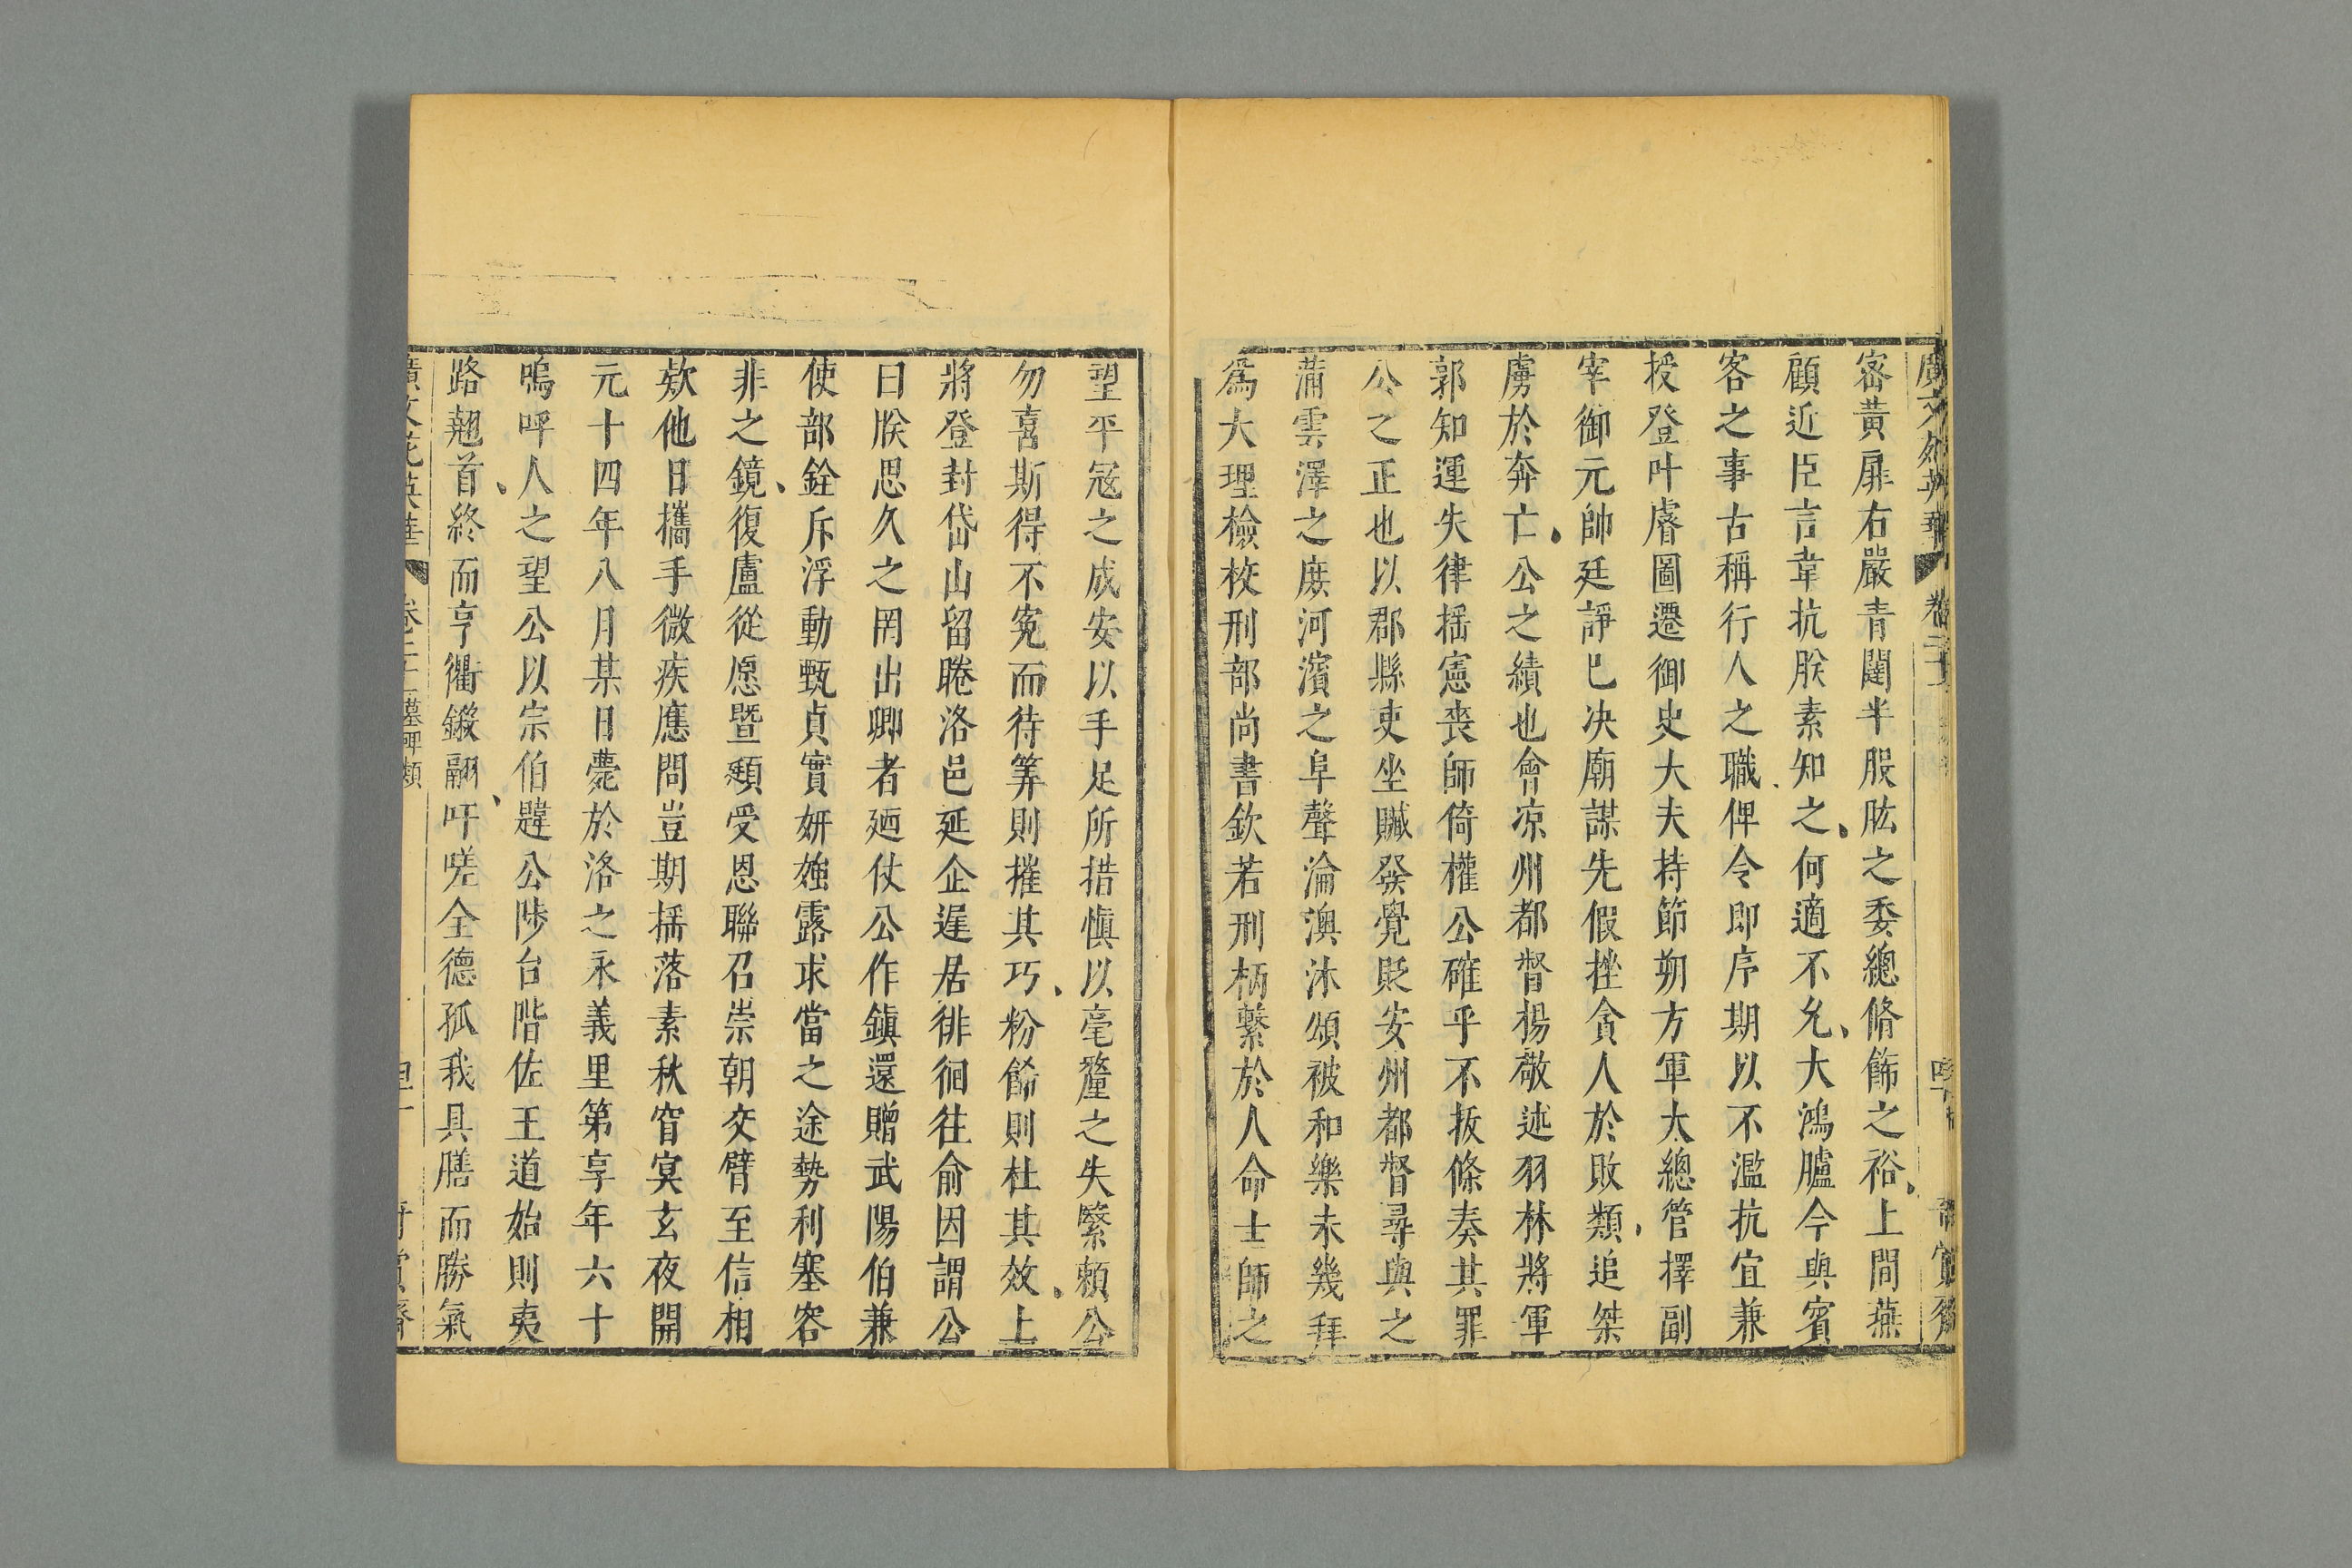 密黃扉右嚴青闥半股肱之委總脩飾之裕上間燕
顧近臣言韋抗朕素知之何適不允大鴻臚今與賓
客之事古稱行人之職俾令即序期以不濫抗宜兼
授登叶睿圖遷御史大夫持節朔方軍大總管擇副
宰御元帥廷諍已决廟謀先假挫貪人於敗類追桀
虜於奔亡公之績也會凉州都督楊敬述羽林將軍
郭知運失律揺憲喪師倚權公確乎不抜條奏其罪
公之正也以郡縣吏坐贓發覺貶安州都督尋與之
蒲雲澤之庶河濱之阜聲淪澳沐頌被和樂未幾拜
爲大理檢校刑部尚書欽若刑柄繫於人命士師之
望平冦之成安以手足所措愼以毫釐之失繄頼公
勿喜斯得不寃而待筭則摧其巧粉餙則杜其效上
將登封岱山留睠洛邑延企遲居徘徊往俞因謂公
曰朕思久之罔出卿者廼仗公作鎮還贈武陽伯兼
使部銓斥浮動甄貞實妍媸露求當之途勢利塞容
非之鏡復盧從愿暨頲受恩聯召崇朝交臂至信相
欸他日攜手微疾應問豈期揺落素秋窅冥玄夜開
元十四年八月某日薨於洛之永義里第享年六十
嗚呼人之望公以宗伯韙公陟台階佐王道始則夷
路翹首終而亨衢鎩翮吁嗟全德孤我具膳而勝氣
廣文苑英華 卷二十 墓碑類